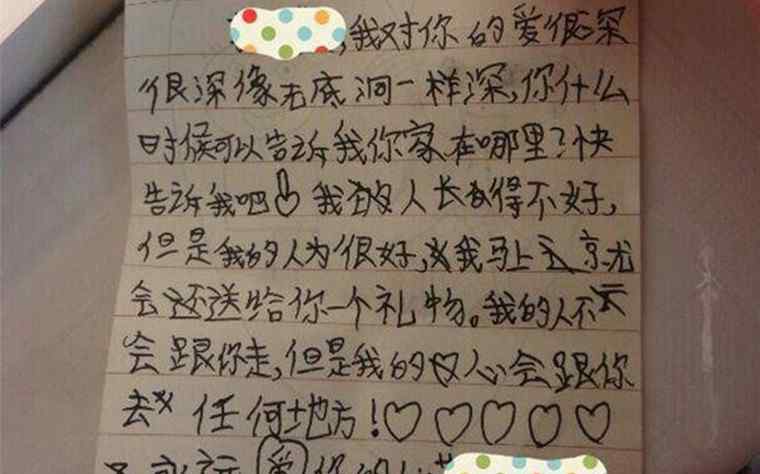 ,我对你的爱很深
很深像无底洞一样深,你什么
时候可以告诉我你家在哪里?快
告诉我吧 我的人长得不好,
但是我的人为很好,我马上 就
会送给你一个礼物。我的人不
会跟你走,但是我的心会跟你
去 任何地方!♡♡♡♡♡
永远爱你的